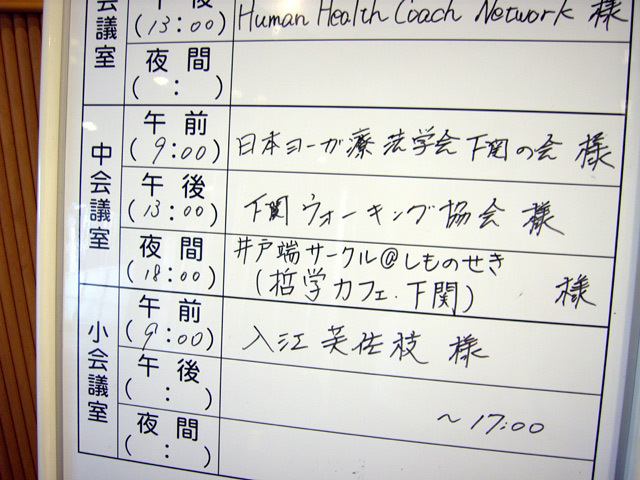 会議室
午後
(13:00)
Human Health Coach Network 様
夜間
( : )
中会議室
午前
(9:00)
日本ヨーガ療法学会下関の会 様
午後
(13:00)
下関ウォーキング協会 様
夜間
(18:00)
井戸端サークル@しものせき
(哲学カフェ.下関) 様
小会議室
午前
(9:00)
入江芙佐枝 様
午後
( : )
~17:00
夜間
( : )